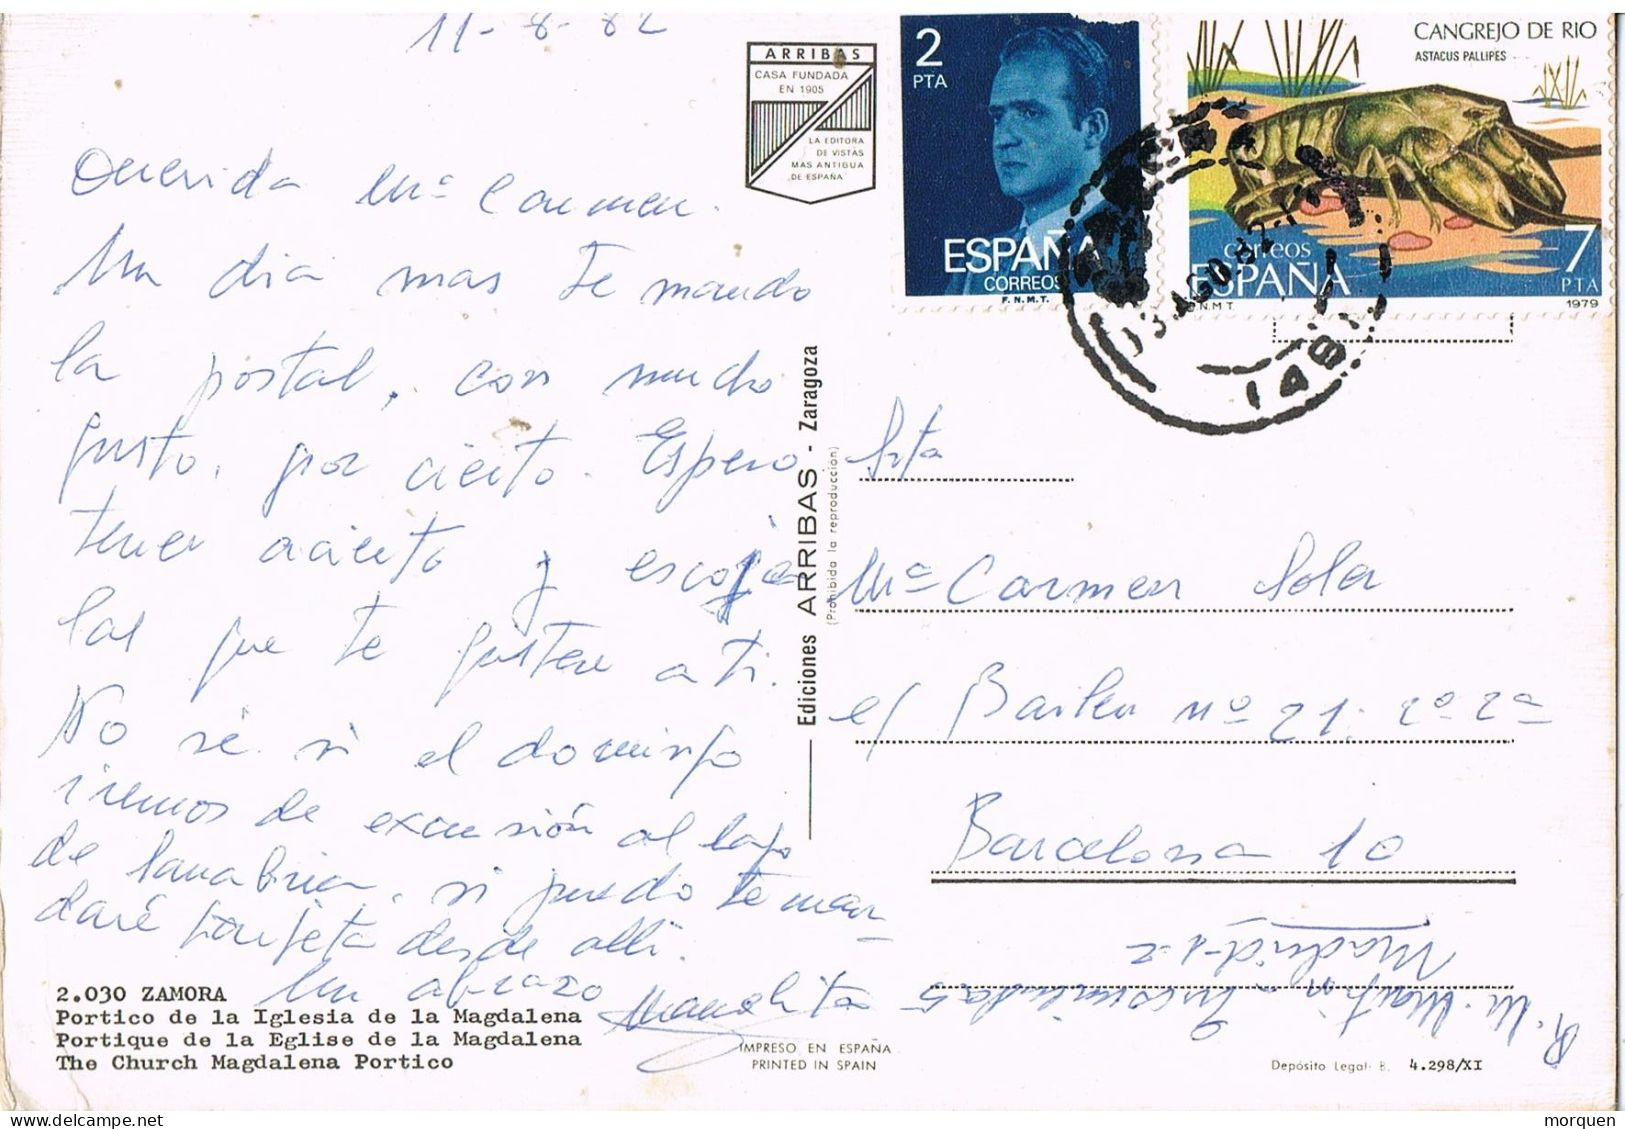 11-8-82
ARRIBAS
CASA FUNDADA
EN 1905
LA EDITORA
DE VISTAS
MAS ANTIGUA
DE ESPAÑA
2
PTA
ESPAÑA
CORREOS
F.N.M.T.
CANGREJO DE RIO
ASTACUS PALLIPES
correos
ESPAÑA
7
PTA
1979
Querida Mª Carmen.
Un dia mas te mando
la postal, con mucho
gusto, por cierto. Espero
tener acierto y escojer
las que te gusten a ti.
No sé si el domingo
iremos de excursión al lago
de Sanabria, si puedo te man-
daré tarjeta desde allí.
Un abrazo
Manolita
2.030 ZAMORA
Portico de la Iglesia de la Magdalena
Portique de la Eglise de la Magdalena
The Church Magdalena Portico
Ediciones ARRIBAS - Zaragoza
(Prohibida la reproducción)
Srta
Mª Carmen Sola
c/ Bailen nº 21. 2º 2ª
Barcelona 10
R. M. Martin - Encomienda 5
Madrid-12
IMPRESO EN ESPAÑA
PRINTED IN SPAIN
Depósito Legal: B. 4.298/XI
morquen